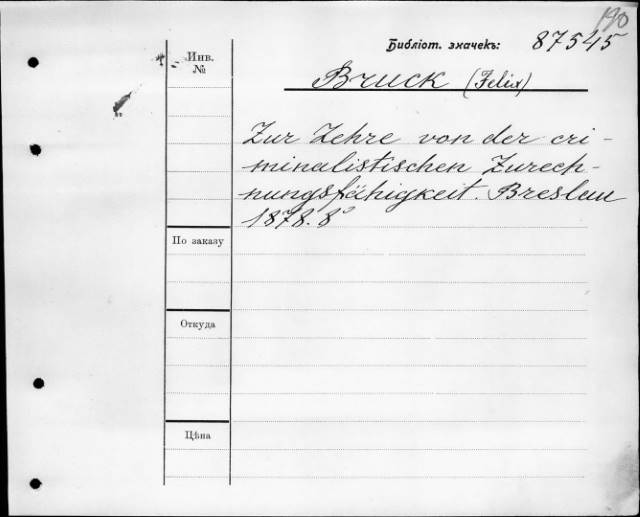 190
Библіот. значекъ: 87545
Инв.
№
Bruck (Felix)
Zur Lehre von der cri-
minalistischen Zurech-
nungsfähigkeit. Breslau
1878. 8°
По заказу
Откуда
Цѣна